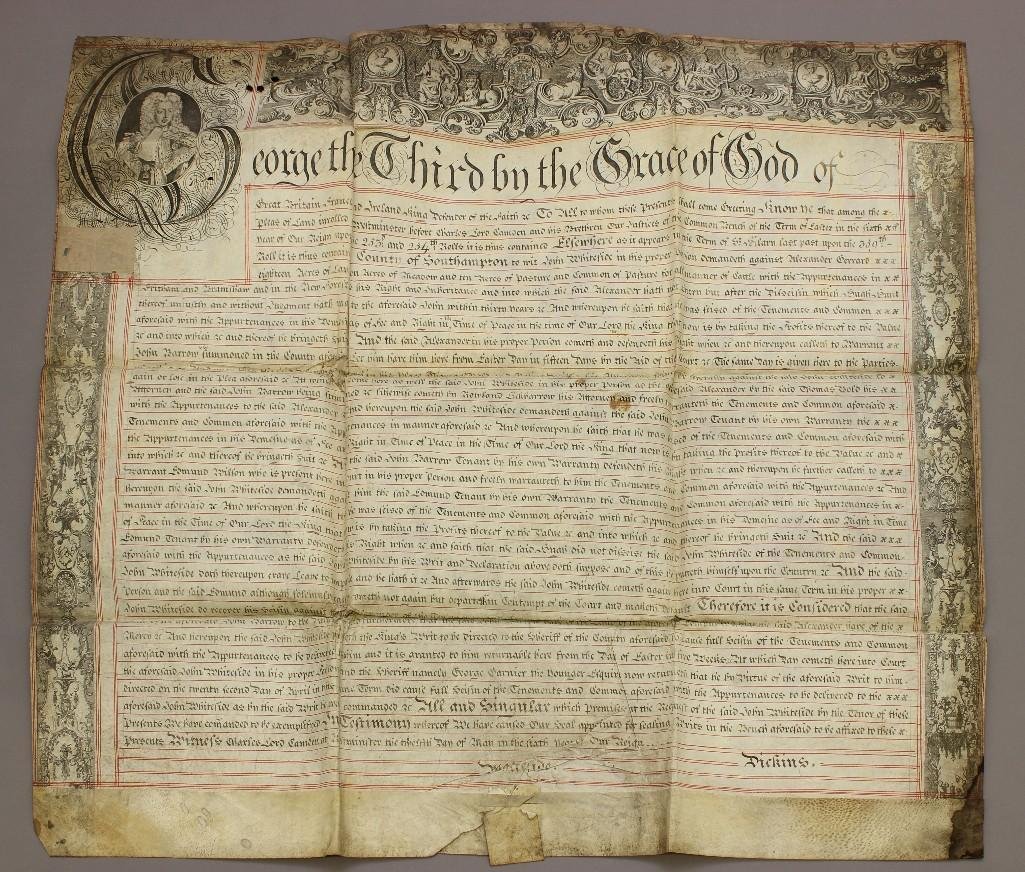 George the Third by the Grace of God of
Great Britain France and Ireland King Defender of the Faith &c To All to whom these Presents shall come Greeting Know ye that among the x
Pleas of Land inrolled Westminster before Charles Lord Camden and his Brethren Our Justices of the Common Bench of the Term of Easter in the sixth
year of Our Reign upon the 233d and 234th Rolls it is thus contained Elsewhere as it appears in the Term of St Hilary last past upon the 319th
Roll it is thus contained County of Southampton to wit John Whiteside in his proper Person demandeth against Alexander Gerrard x x x
eighteen Acres of Land ten Acres of Meadow and ten Acres of Pasture and Common of Pasture for all manner of Cattle with the Appurtenances in x x
Fritham and Bramshaw and in the New Forest his Right and Inheritance and into which the said Alexander hath not Entry but after the Disseisin which Hugh Hunt
thereof unjustly and without Judgment hath made to the aforesaid John within thirty years &c And whereupon he saith that he was seised of the Tenements and Common x x x
aforesaid with the Appurtenances in his Demesne as of Fee and Right in Time of Peace in the time of Our Lord the King that now is by taking the Profits thereof to the Value
&c and into which &c and thereof he bringeth Suit And the said Alexander in his proper Person cometh and defendeth his Right when &c and thereupon calleth to Warrant x x
John Barrow summoned in the County aforesaid Let him have him here from Easter Day in fifteen Days by the Aid of the Court &c The same day is given here to the Parties
again or lose in the Plea aforesaid &c At which come here as well the said John Whiteside in his proper Person as the said Alexander by the said Thomas Bold his x x
Attorney and the said John Barrow being summoned &c likewise cometh by his Attorney and freely warranteth the Tenements and Common aforesaid x
with the Appurtenances to the said Alexander and hereupon the said John Whiteside demandeth against the said John Barrow Tenant by his own Warranty the x x x
Tenements and Common aforesaid with the Appurtenances in manner aforesaid &c And whereupon he saith that he was seised of the Tenements and Common aforesaid with
the Appurtenances in his Demesne as of Fee and Right in Time of Peace in the Time of Our Lord the King that now is by taking the Profits thereof to the Value &c and x
into which &c and thereof he bringeth Suit &c And the said John Barrow Tenant by his own Warranty defendeth his Right when &c and thereupon he further calleth to x x x
Warrant Edmund Wilson who is present here in Court in his proper Person and freely warranteth to him the Tenements and Common aforesaid with the Appurtenances &c And
hereupon the said John Whiteside demandeth against him the said Edmund Tenant by his own Warranty the Tenements and Common aforesaid with the Appurtenances in x
manner aforesaid &c And whereupon he saith that he was seised of the Tenements and Common aforesaid with the Appurtenances in his Demesne as of Fee and Right in Time
of Peace in the Time of Our Lord the King that now is by taking the Profits thereof to the Value &c and into which &c and thereof he bringeth Suit &c And the said x x x
Edmund Tenant by his own Warranty defendeth his Right when &c and saith that the said Hugh did not disseise the said John Whiteside of the Tenements and Common
aforesaid with the Appurtenances as the said John Whiteside by his Writ and Declaration above doth suppose and of this he putteth himself upon the Country &c And the said
John Whiteside doth thereupon crave Leave to imparl and he hath it &c And afterwards the said John Whiteside cometh again here into Court in this same Term in his proper x x
Person and the said Edmund although solemnly cometh not again but departeth in Contempt of the Court and maketh Default Therefore it is Considered that the said
John Whiteside do recover his Seisin against
Mercy &c And hereupon the said John Whiteside the Kings Writ to be directed to the Sheriff of the County aforesaid to cause full Seisin of the Tenements and Common
aforesaid with the Appurtenances to be delivered to him and it is granted to him returnable here from the Day of Easter in five Weeks At which Day cometh here into Court
the aforesaid John Whiteside in his proper Person and the Sheriff namely George Garnier the Younger Esquire now returneth that he by Virtue of the aforesaid Writ to him
directed on the twenty second Day of April in the same Term did cause full Seisin of the Tenements and Common aforesaid with the Appurtenances to be delivered to the x x x
aforesaid John Whiteside as by the said Writ he commanded &c All and Singular which Premises at the Request of the said John Whiteside by the Tenor of these
Presents We have comanded to be exemplified In Testimony whereof We have caused Our Seal appointed for sealing Writs in the Bench aforesaid to be affixed to these x
Presents Witness Charles Lord Camden at Westminster the twelfth Day of May in the sixth year of Our Reign
Dickins.